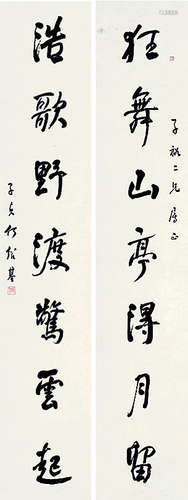 狂舞山亭得月留
子祺二兄属正
浩歌野渡驚雲起
子貞何紹基